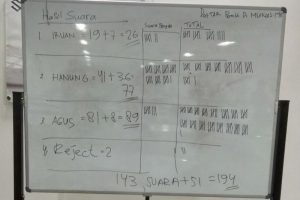 Hasil Suara
Suara Pemilih
TOTAL
1. IRWAN = 19 + 7 = 26
2. HANUNG = 41 + 36 =
77
3. AGUS = 81 + 8 = 89
4. Reject = 2
143 SUARA + 51 = 194